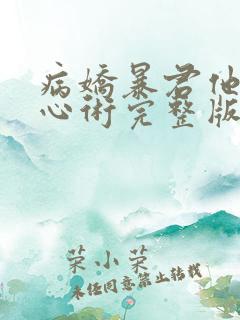 病嬌暴君他
心術完整版
荣小荣
未经同意禁止转载